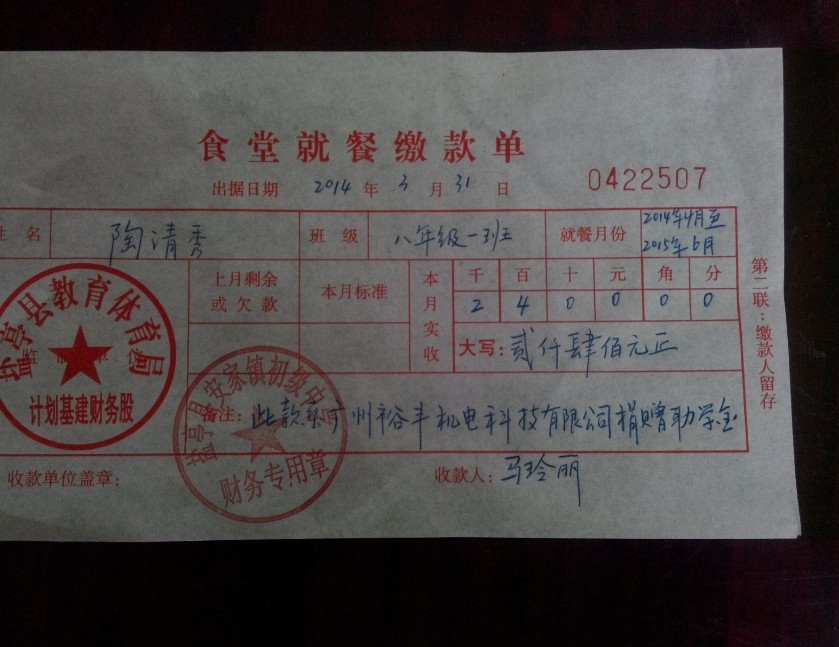 食堂就餐缴款单
出据日期 2014 年 3 月 31 日
0422507
姓名 陶清秀 班级 八年级一班 就餐月份 2014年4月至
2015年6月
上月剩余
或欠款
本月标准
本月实收
千 百 十 元 角 分
2 4 0 0 0 0
大写: 贰仟肆佰元正
备注: 此款系广州裕丰机电科技有限公司捐赠助学金
收款单位盖章:
收款人: 马玲丽
第二联:缴款人留存
盐亭县教育体育局
计划基建财务股
盐亭县安家镇初级中学
财务专用章